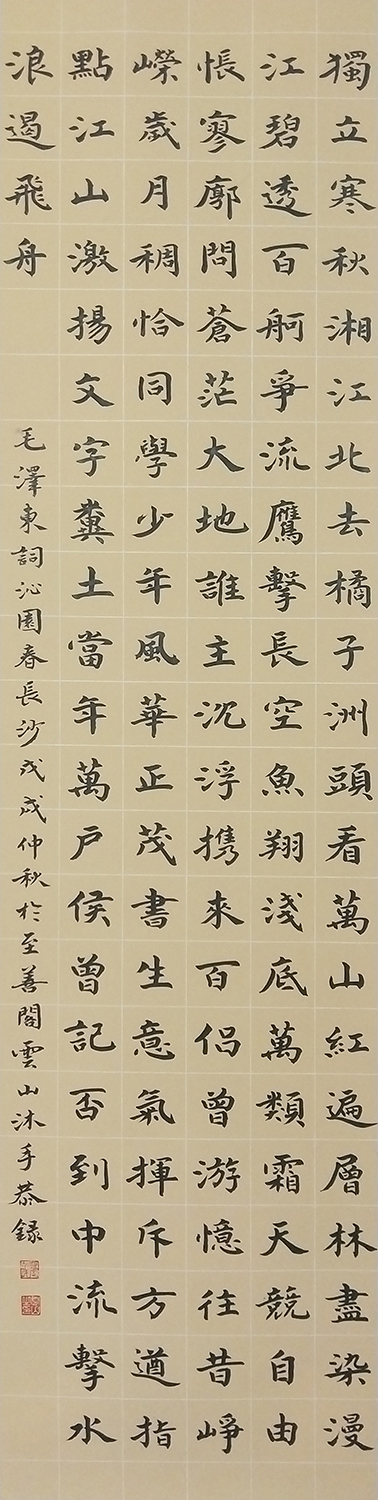 獨立寒秋湘江北去橘子洲頭看萬山紅遍層林盡染漫
江碧透百舸爭流鷹擊長空魚翔淺底萬類霜天競自由
悵寥廓問蒼茫大地誰主沉浮携來百侣曾游憶往昔崢
嶸歲月稠恰同學少年風華正茂書生意氣揮斥方遒指
點江山激揚文字糞土當年萬户侯曾記否到中流擊水
浪遏飛舟
毛澤東詞沁園春長沙戊戌仲秋於至善閣雲山沐手恭録